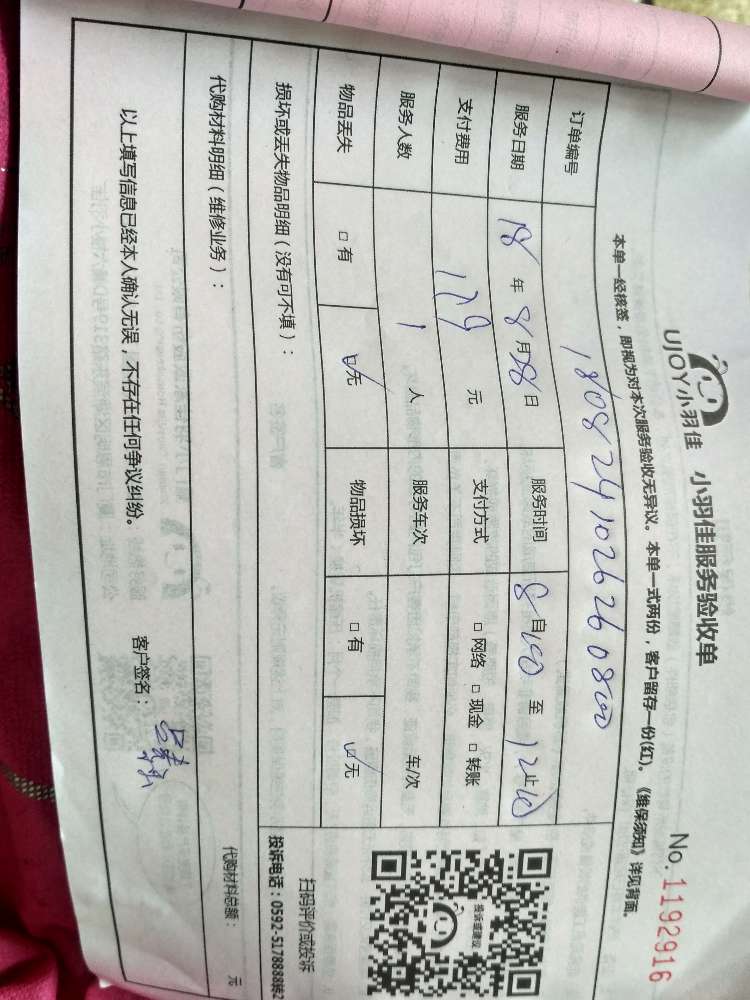 UJOY小羽佳 小羽佳服务验收单
No. 1192916
本单一经核签，即视为对本次服务验收无异议。本单一式两份，客户留存一份(红)。《维保须知》详见背面。
订单编号
服务日期 18 年 8 月 28 日 服务时间 8 自 至 12 止
支付费用 129 元 支付方式 □ 网络 □ 现金 □ 转账
服务人数 1 人 服务车次 车/次
物品丢失 □ 有 □ 无 物品损坏 □ 有 □ 无
投诉或建议
扫码评价或投诉
投诉电话：0592-5178888转2
损坏或丢失物品明细（没有可不填）：
代购材料明细（维修业务）：
代购材料总额： 元
以上填写信息已经本人确认无误，不存在任何争议纠纷。 客户签名：